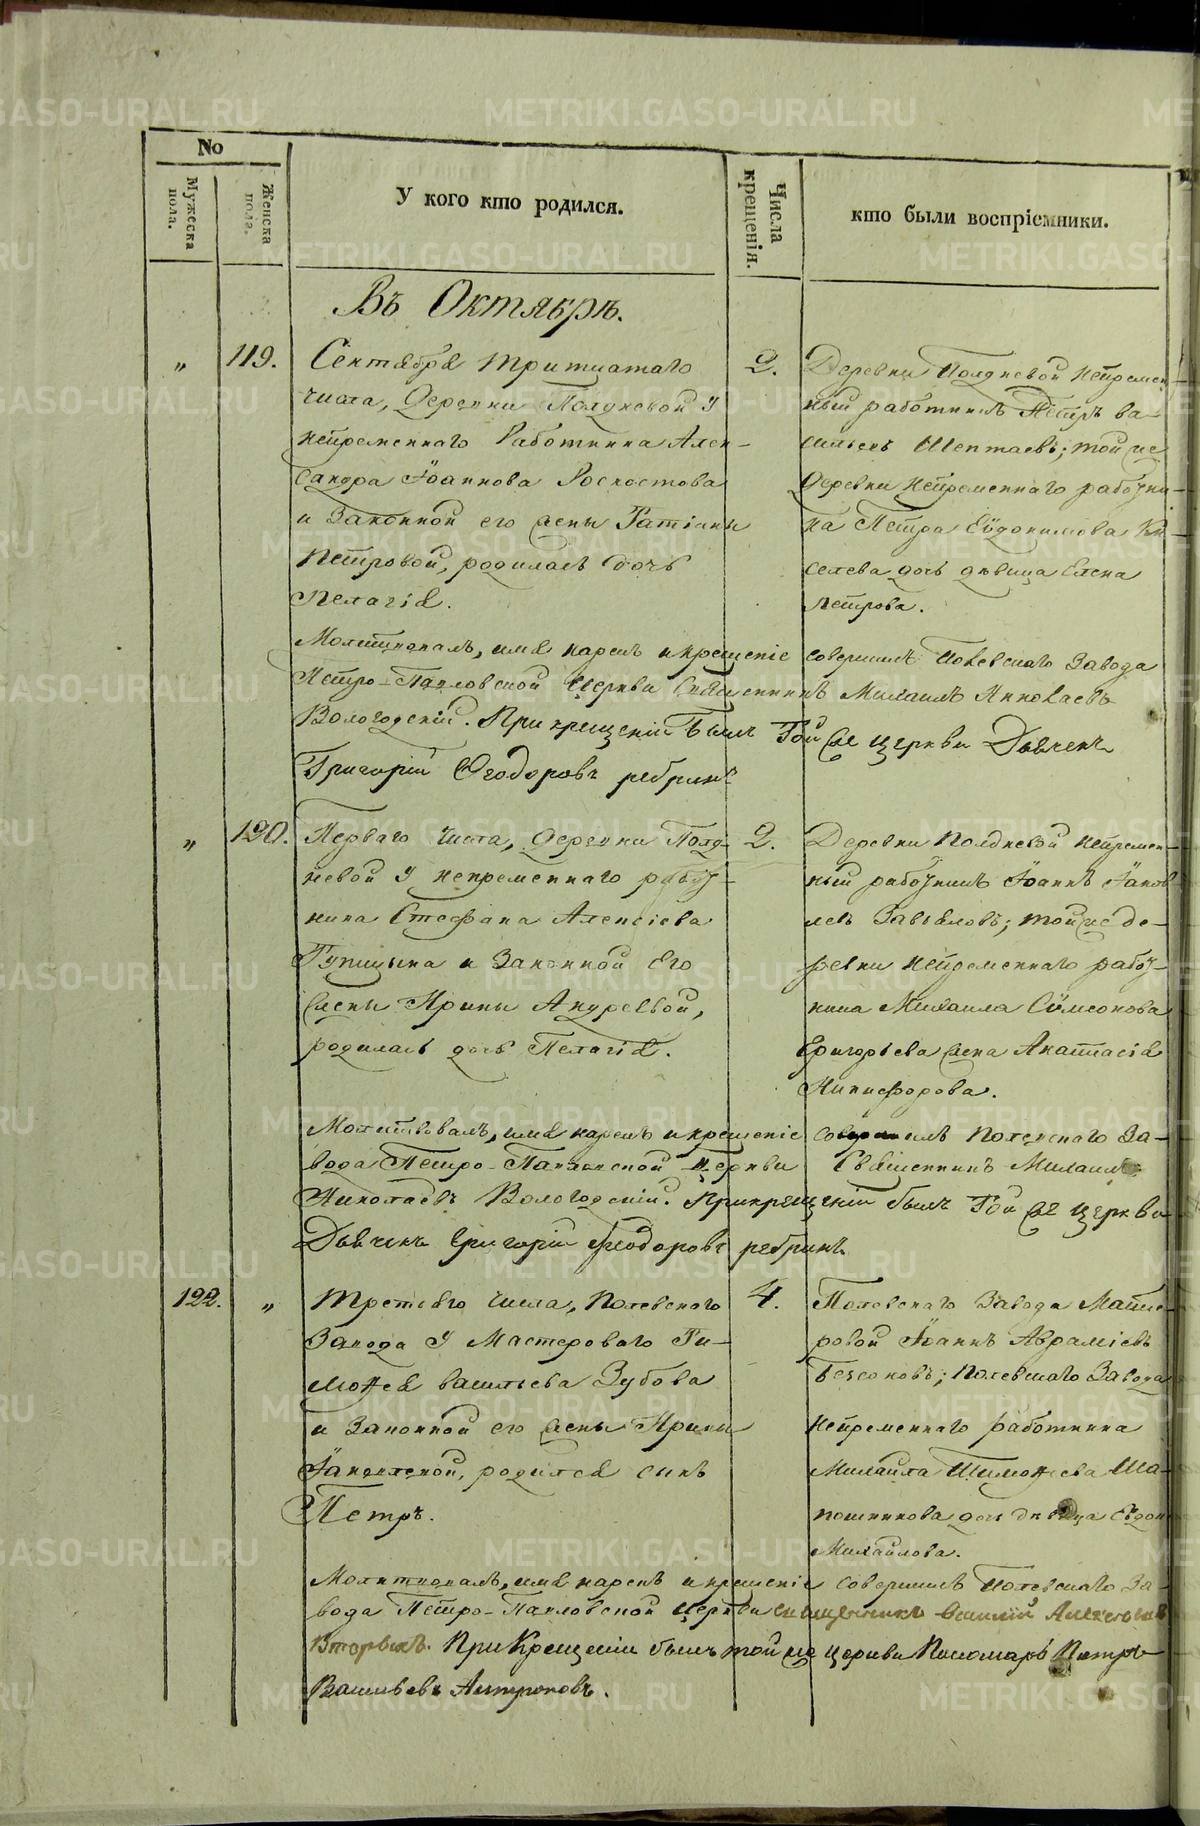 No
Мужеска пола.
Женска пола.
У кого кто родился.
Числа крещенія.
кто были воспріемники.
Въ Октябрѣ.
„ 119. Сентября тритцатаго
числа, Деревни Полдневой у
непременнаго Работника Алек-
сандра Іоаннова
и Законной его жены Татіаны
Петровой, родилась дочь
Пелагія.
2.
Деревни Полдневой непремен-
ный работникъ Петръ Ва-
сильевъ Шептаевъ; той же
деревни непременнаго работни-
ка Петра Евдокимова Ки
селева дочь девица Елена
Петрова.
Молитвовалъ, имя нарекъ и крещеніе совершилъ Полевскаго Завода
Петро-Павловской Церкви Священникъ Михаилъ Николаевъ
Вологодскій. При крещеніи былъ той же церкви Дьячекъ
Григорій Ѳеодоровъ
„ 120. Перваго числа, Деревни Полд-
невой у непременнаго работ-
ника Стефана Алексіева
и Законной Его
жены Ирины Андреевой,
родилась дочь Пелагія.
2.
Деревни Полдневой непремен-
ный работникъ Іоаннъ Іаков-
левъ Завьяловъ; той же де-
ревни непременнаго работ-
ника Михаила Симеонова
Григорьева жена Анастасія
Никифорова.
Молитвовалъ, имя нарекъ и крещеніе совершилъ Полевскаго За-
вода Петро-Павловской Церкви Священникъ Михаилъ
Николаевъ Вологодскій. При крещеніи былъ той же церкви
Дьячекъ Григорій Ѳеодоровъ
122. „ Третьяго числа, Полевскаго
Завода у Мастероваго Ти-
моѳея Васильева Зубова
и Законной его жены Ирины
Іаковлевой, родился сынъ
Петръ.
4.
Полевскаго Завода Масте-
ровой Іоаннъ Авраміевъ
Безсоновъ; Полевскаго Завода
непременнаго работника
Михаила Тимоѳеева Ша-
пошникова дочь девица Евдок
Михайлова.
Молитвовалъ, имя нарекъ и крещеніе совершилъ Полевскаго За-
вода Петро-Павловской Церкви священникъ Василій Алексеевъ
Вторыхъ. При Крещеніи былъ той же церкви Пономарь Петръ
Васильевъ Антроповъ.
METRIKI.GASO-URAL.RU